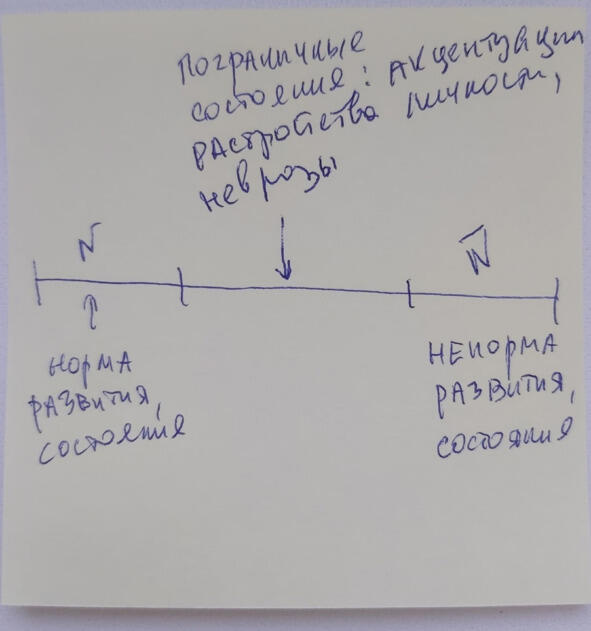 Пограничные
состояния: акцентуации
растройства личности,
неврозы
N
N̅
норма
развития,
состояния
ненорма
развития,
состояния